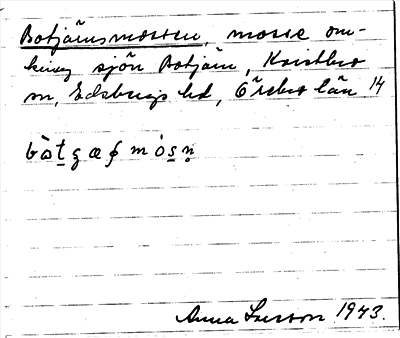 Botjärnsmossen, mosse om-
kring sjön Botjärn, Kvistbro
sn, Edsbergs hd, Örebro län 14
mòsn̥
Anna Larsson 1943.